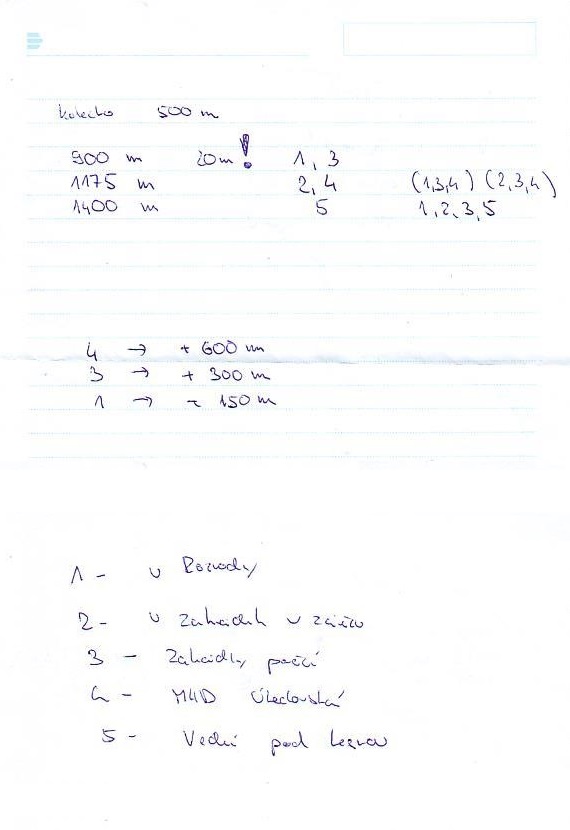 kolečko 500 m
900 m 20m! 1, 3
1175 m 2, 4 (1,3,4) (2,3,4)
1400 m 5 1, 2, 3, 5
4 → + 600 m
3 → + 300 m
1 → - 150 m
1 - u Rozvody
2 - u zahrádek u
3 - Zahrádky
4 - MHD
5 - pod